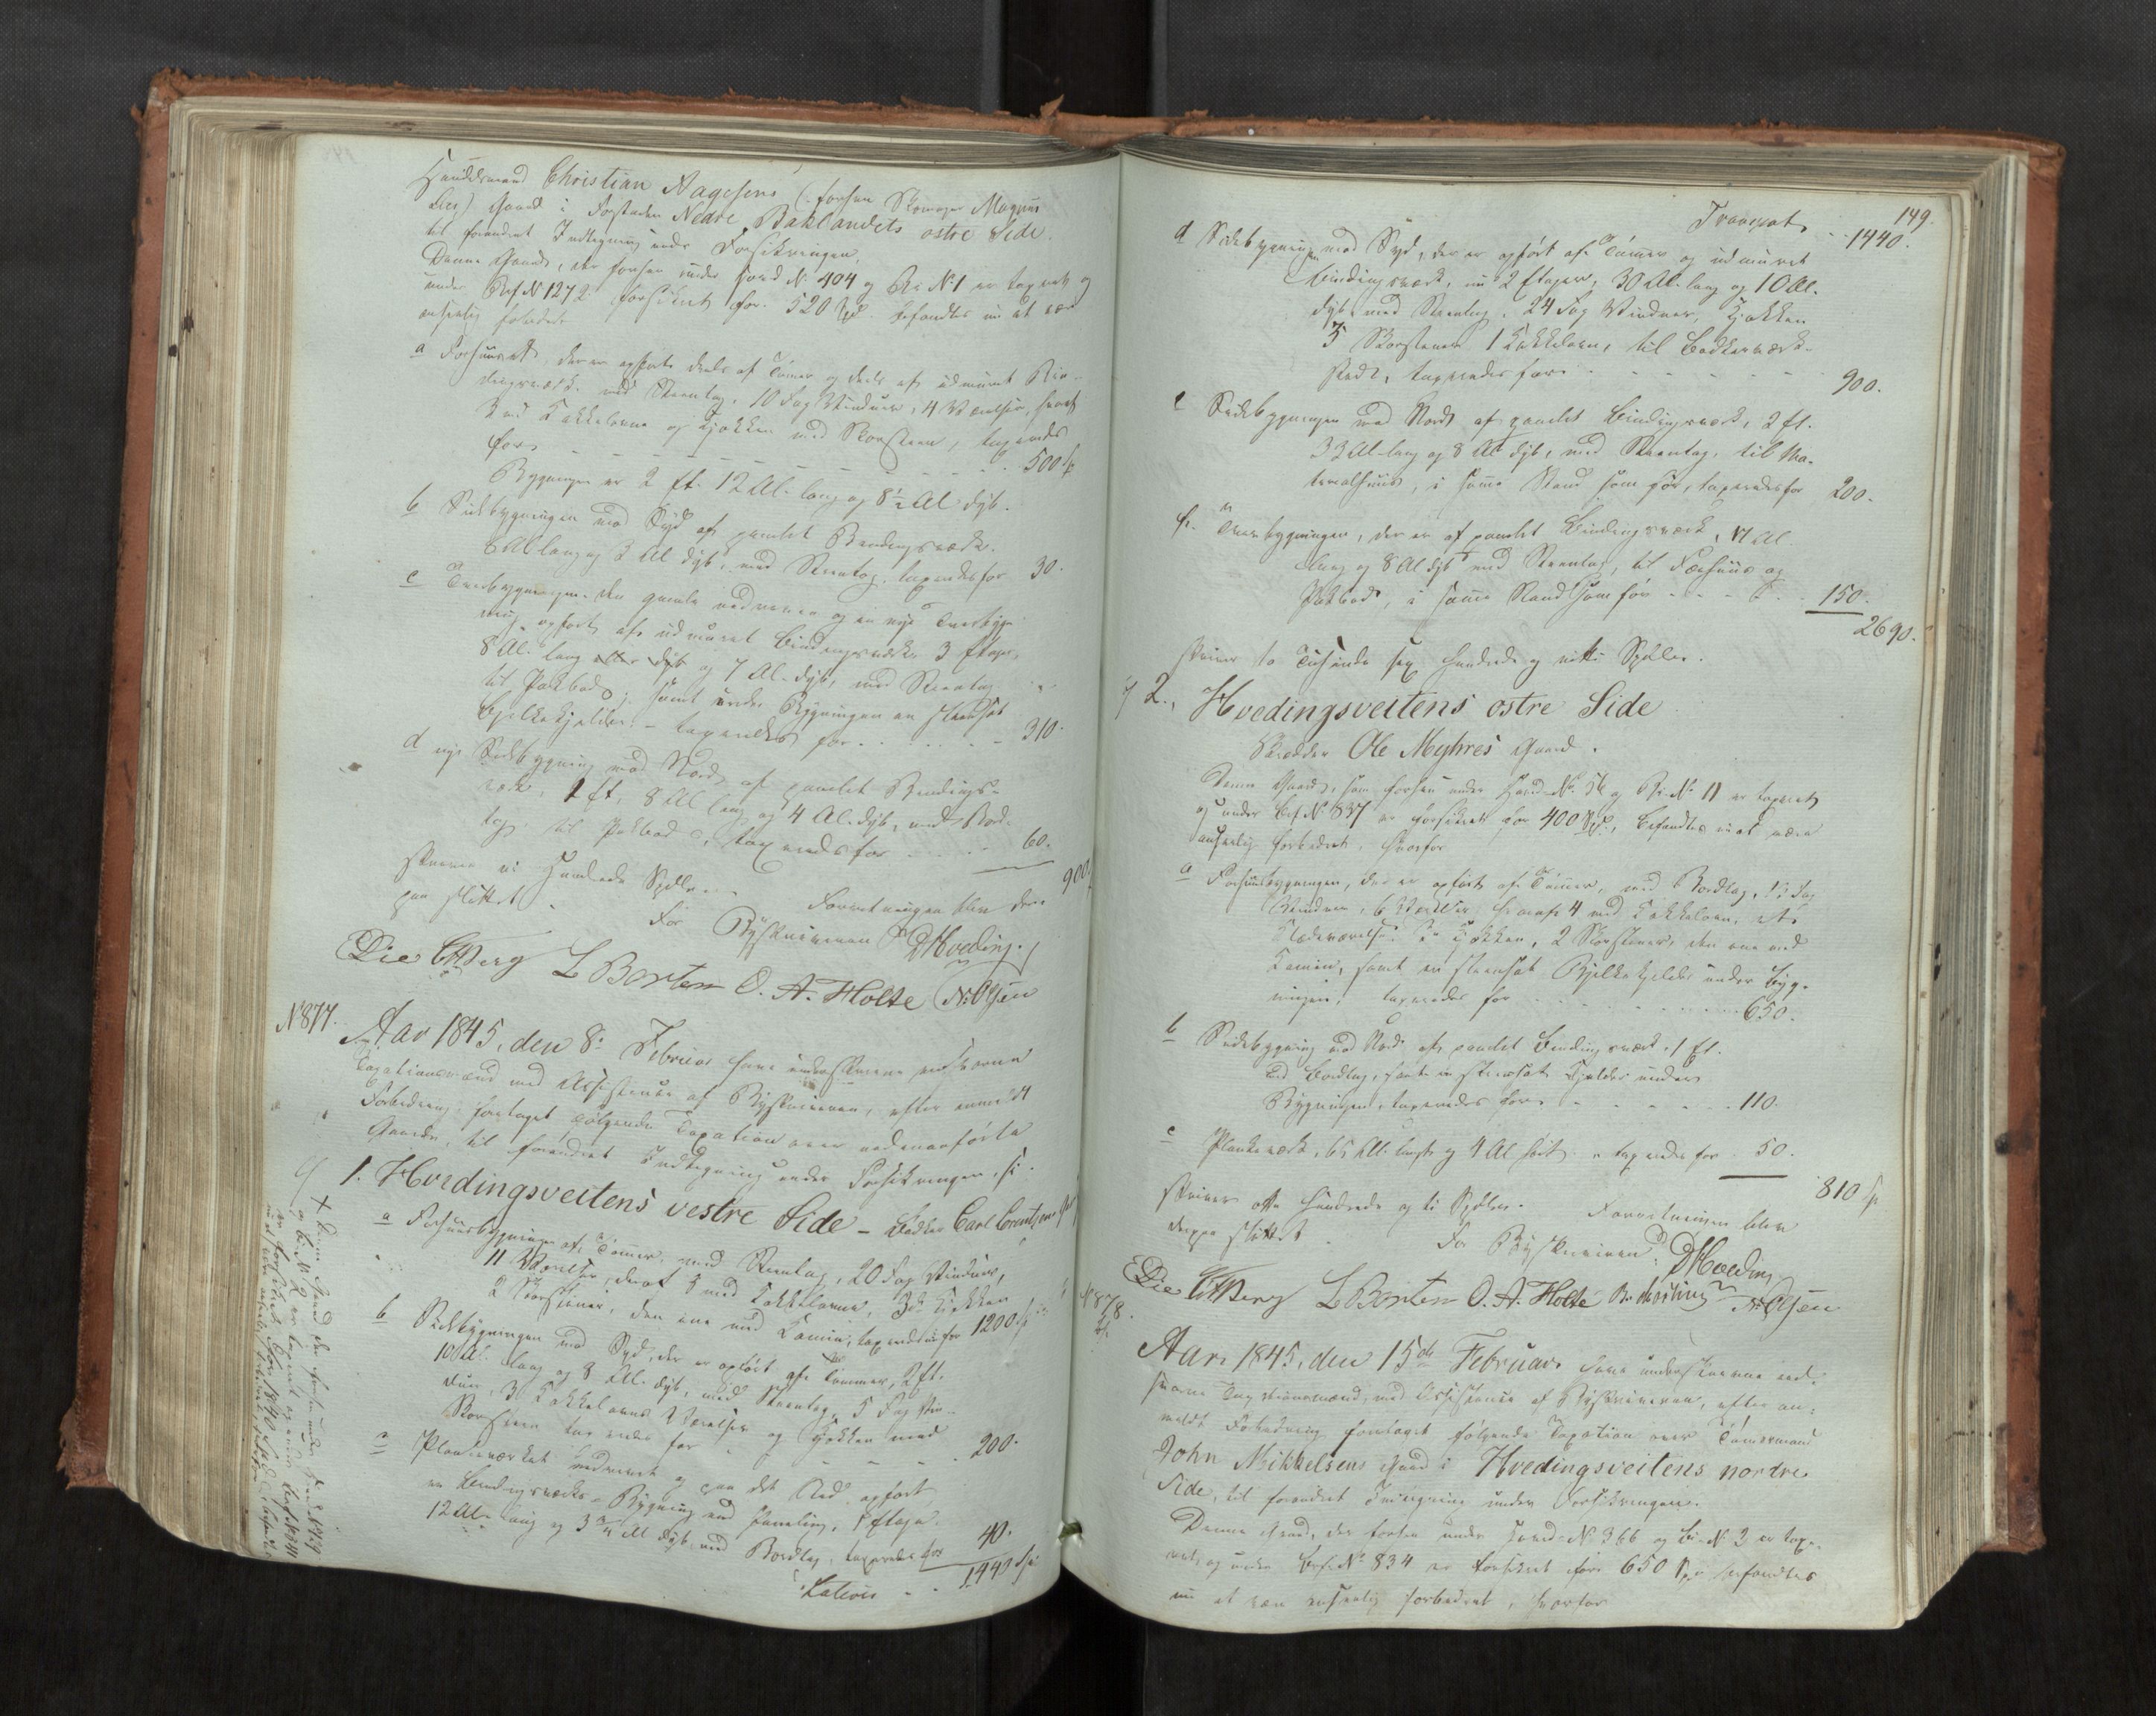 Handelsmand Christian Aagesens (forhen Skomager Magnus
) Gaard i Forstaden Nedre Baklandets østre Side.
til forandret Indtegning under Forsikringen.
Denne Gaard, der forhen under Jord No 404 og Br No 1 er taxeret og
under Brf No 1272 forsikret for 520 Spd. befandtes nu at være
anseelig forbedret
a Forhuuset, der er opført deels af Tømer og deels af udmuret Bin-
dingsværk med Steentag, 10 Fag Vinduer, 4 Værelser, hvoraf
3 med Kakkelovne og Kjøkken med Skorsteen, taxeredes
for - - - 500 Sp
Bygningen er 2 Et. 12 Al. lang og 8½ Al dyb.
b Sidebygningen mod Syd af panelet Bindingsværk.
8 Al lang og 3 Al dyb, med Steentag. taxeredes for 30.
c Tverbygningen. den gamle nedreven og en nye Tverbyg-
ning opført af udmuret Bindingsværk 3 Etager,
8 Al. lang og 7 Al. dyb, med Steentag
til Pakbod, samt under Bygningen en steensat
Bjelkekjelder - taxeredes for - - 310.
d nye Sidebygning mod Nord af panelet Bindings-
værk, 1 Et, 8 Al lang og 4 Al. dyb, med Bord-
tag til Pakbod, taxeredes for - - 60.
900.
skriver ni Hundrede Spdlr. Forretningen blev der-
paa sluttet. For Byskriveren D Hveding.
Die CWBerg L Borten O. A. Holte N: Olsen
No 877.
Aar 1845, den 8de Februar have underskrevne edsvorne
Taxationsmænd med Assistence af Byskriveren, efter anmeldt
Forbedring foretaget følgende Taxation over nedenanførte
Gaarde, til forandret Indtegning under Forsikringen,
1. Hvedingsveitens vestre Side - Bødker Carl
a Forhuusbygningen af Tømer, med Steentag, 20 Fag Vinduer,
11 Værelser, deraf 5 med Kakkelovne, Kjøkken
2 Skorstener, den ene med Kamin, taxeredes for 1200 Sp
b Sidebygningen mod Syd, der er opført af Tømmer, 2 Et.
10 Al. lang og 8 Al. dyb, med Steentag, 5 Fag Vin-
duer, 3 Kakkelovns Værelser og Kjøkken med
Skorsteen taxeredes for - - 200.
c Plankeværket nedrevet og paa det Sted opført
en Bindingsværks-Bygning med Paneling, 1 Etage
12 Al. lang og 3¾ Al dyb, med Bordtag, taxeredes for 40.
Lateris - - 1440 Sp
+ Denne Gaard der forhen under Jord No
og Br No 2 er taxeret og under Brf No
er forsikret for 1840 Spd, befandtes
149.
Transport - - 1440.
d Sidebygningen mod Syd, der er opført af Tømer og udmuret
Bindingsværk, i 2 Etager, 30 Al. lang og 10 Al.
dyb, med Steentag. 24 Fag Vinduer, Kjøkken
3 Skorstener 1 Kakkelovn, til Bødkerværk-
sted, taxeredes for - - 900.
e Sidebygningen mod Nord af panelet Bindingsværk, 2 Et.
33 Al. lang og 8 Al dyb, med Steentag, til Ma-
terialhuus, i samme Stand som før, taxeredes for 200.
f. Tverbygningen, der er af panelet Bindingsværk, 17 Al.
lang og 8 Al dyb med Steentag, til Fæhuus og
Pakbod, i samme Stand som før - - - 150.
2690.
skriver to Tusinde sex Hundrede og nitti Spdlr.
2., Hvedingsveitens østre Side
Skrædder Ole Meyhres Gaard.
Denne Gaard, som forhen under Jord-No. 56 og Br-No 11 er taxeret
og under Brf. No 837 er forsikret for 400 Spd, befandtes nu at være
anseelig forbedret, hvorfor
a Forhuusbygningen, der er opført af Tømer, med Bordtag, Fag
Vinduer, 6 Værelser hvoraf 4 med Kakkelovn, et
Klædeværelse, Kjøkken, 2 Skorstener, den ene med
Kamin, samt en steensat Bjelkekjelder under Byg-
ningen, taxeredes for - - - 650.
b Sidebygning mod Nord af panelet Bindingsværk, 1 Et.
med Bordtag, samt en steensat Kjelder under
Bygningen, taxeredes for - - - 110.
c Plankeværk, 65 Al. langt og 4 Al høit, taxeredes for - 50.
810 Sp
skriver otte Hundrede og ti Spdlr. Forretningen blev
derpaa sluttet. For Byskriveren. D Hveding
Die CWBerg L Borten O. A. Holte N: Olsen
No 878.
Aar 1845, den 15de Februar have underskrevne ed-
svorne Taxationsmænd, med Assistence af Byskriveren, efter an-
meldt Forbedring foretaget følgende Taxation over Tømermand
John Mikkelsens Gaard i Hvedingsveitens nordre
Side, til forandret Indtegning under Forsikringen.
Denne Gaard, der forhen under Jord-No 366 og Br-No 3 er taxe-
ret, og under Brf. No 834 er forsikret for 650 Sp, befandtes
nu at være anseelig forbedret, hvorfor